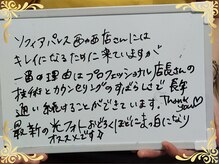 ソフィアパレス西の西店さんには
キレイになるために来ていますが
一番の理由はプロフェッショナル店長さんの
技術とカウンセリングのすばらしさで長年
通い続けることができています。Thank you♡
最新の光フォトおどろくほどにまっ白になり
オススメです☆